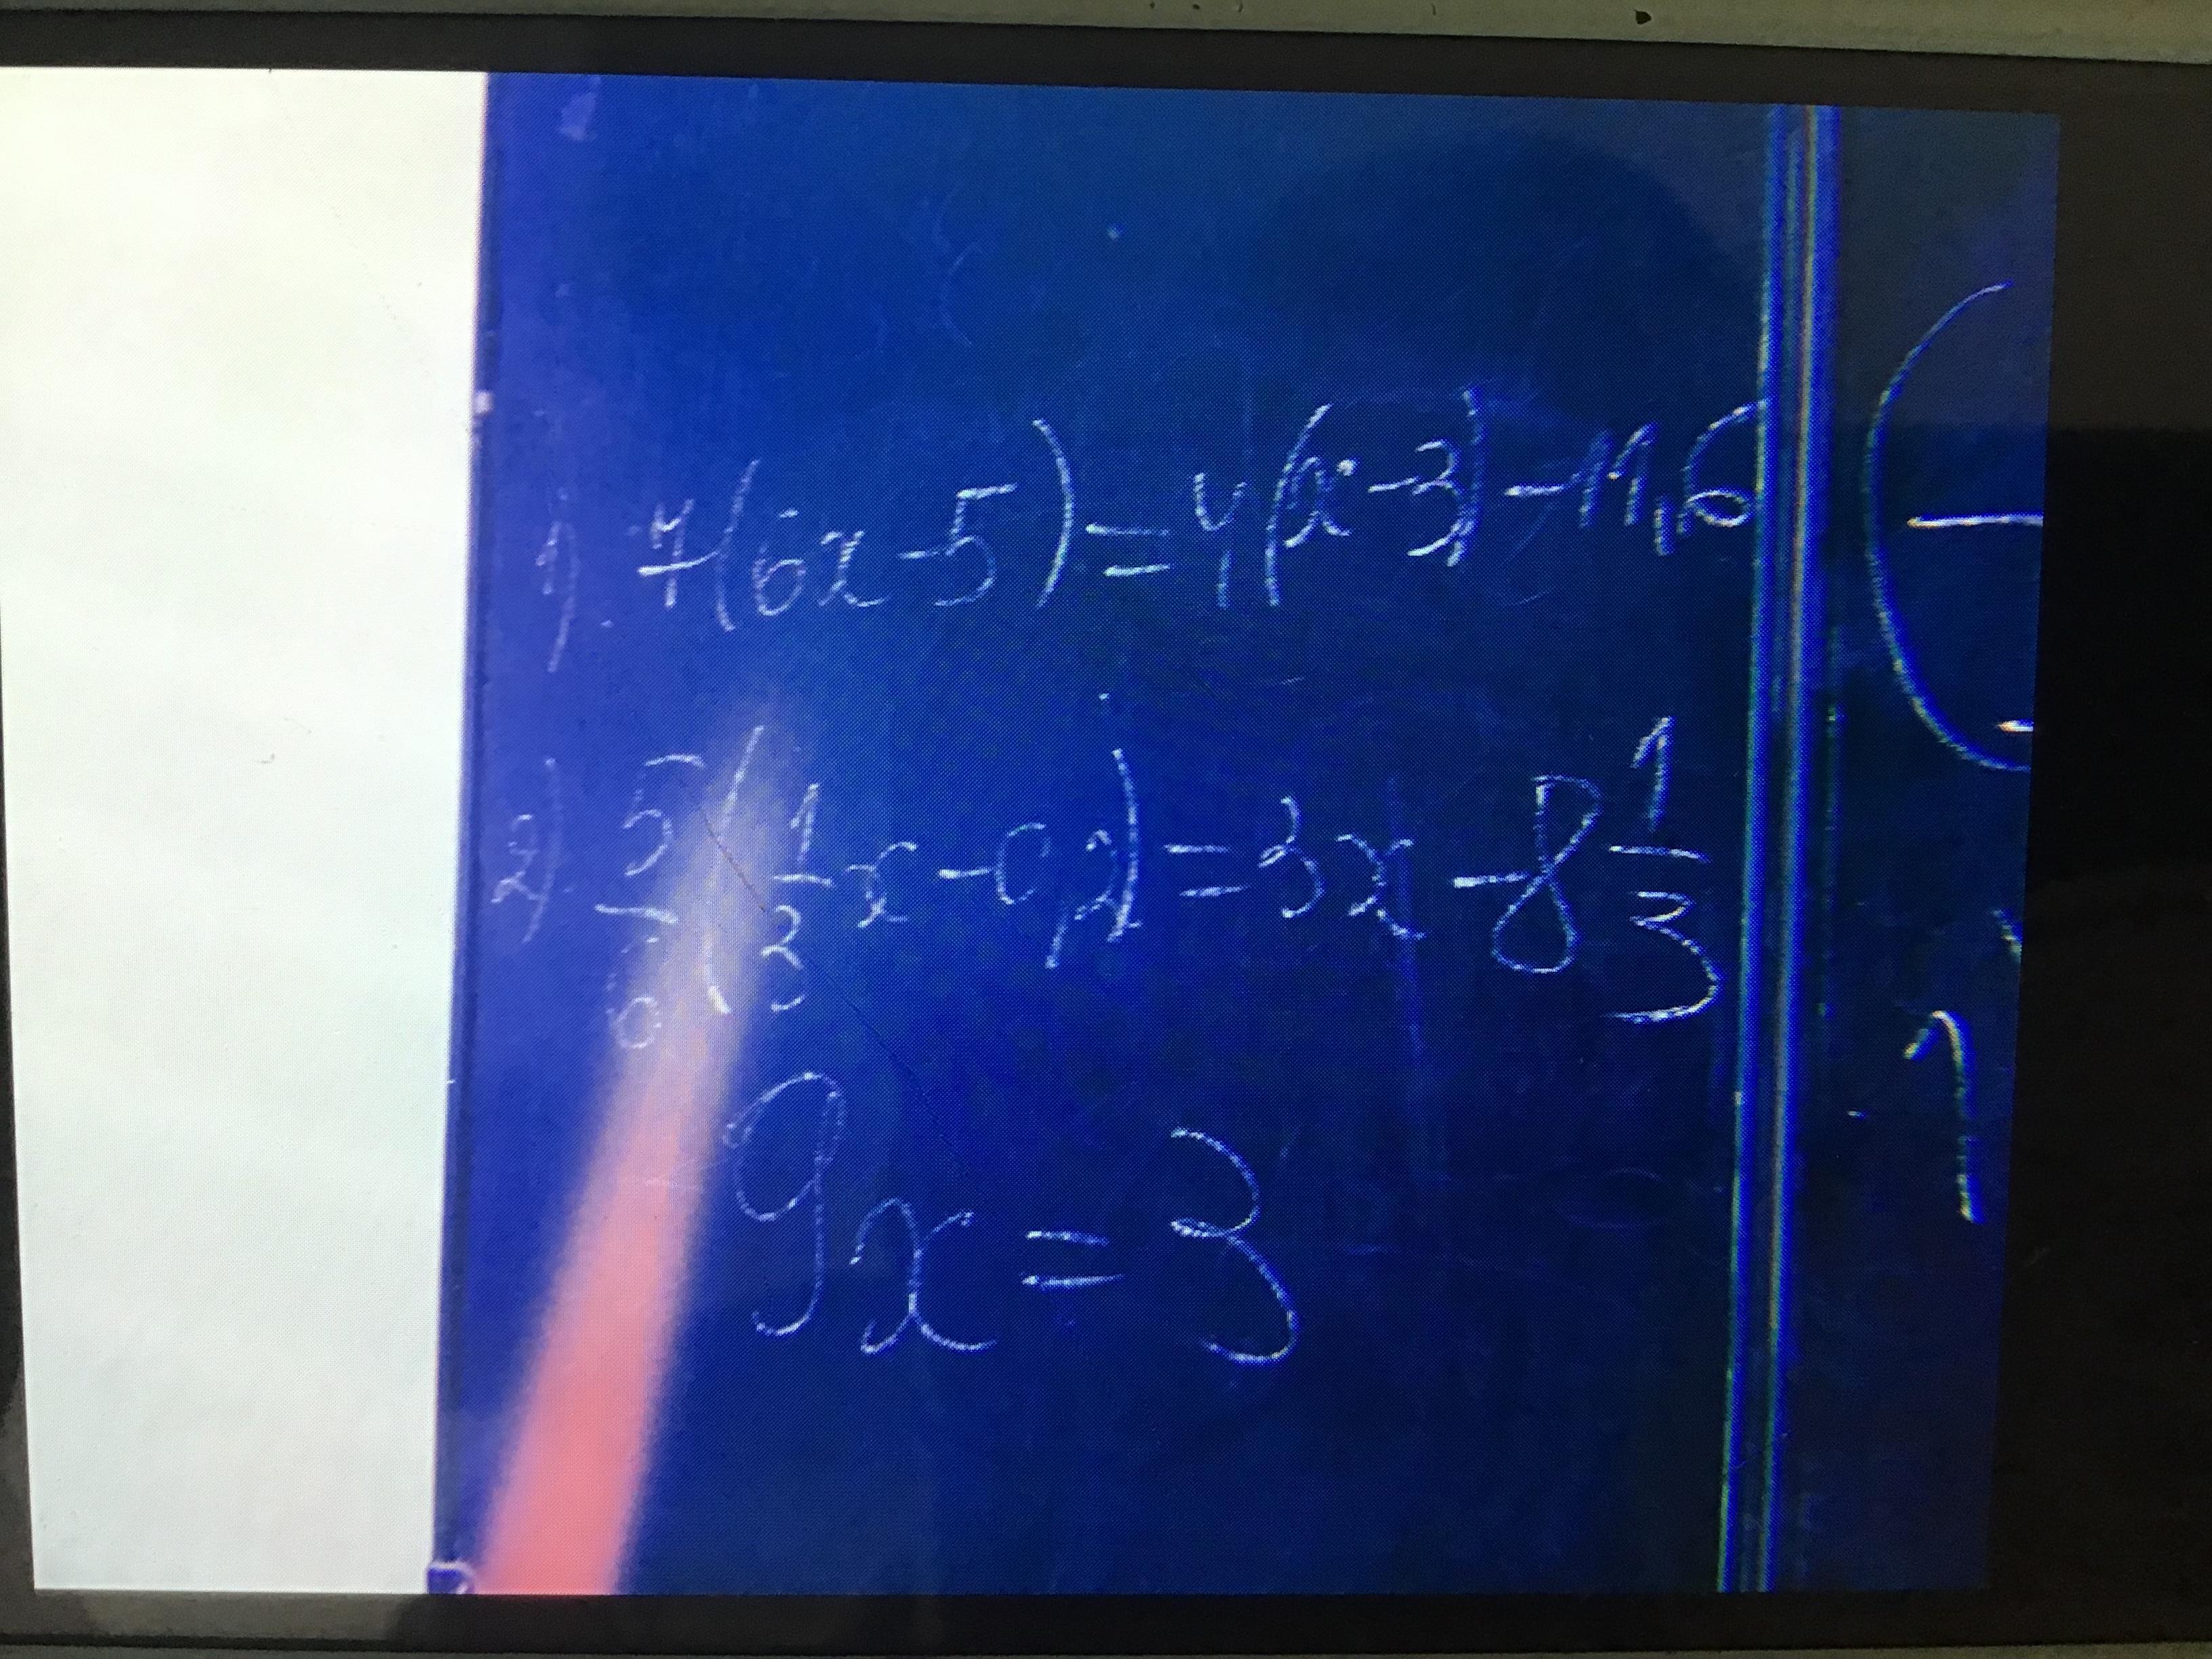 1) 7(6x-5)=4(x-3)-11,6
2) 5/6(1/3x-0,2)=3x-8 1/3
9x=3